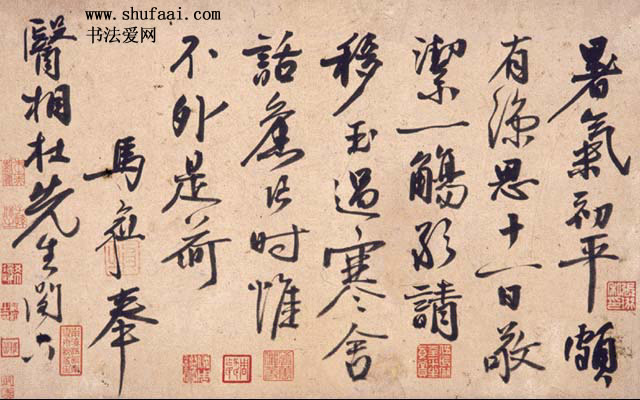 www.shufaai.com
书法爱网
暑氣初平頗
有涼思十一日敬
潔一觴敢請
移玉過寒舍
話舊片时惟
不外是荷
馬愈奉
醫相杜先生閣下